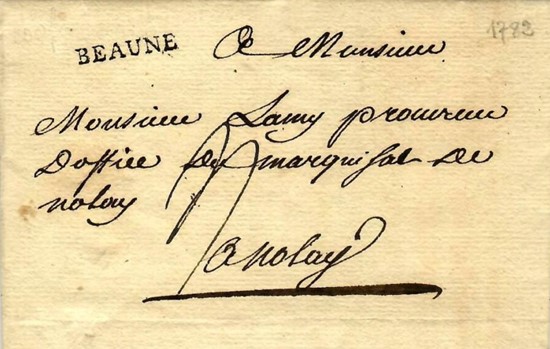 BEAUNE
A Monsieur
1782
Monsieur Lamy procureur
doffice du marquisat de
nolay
a nolay